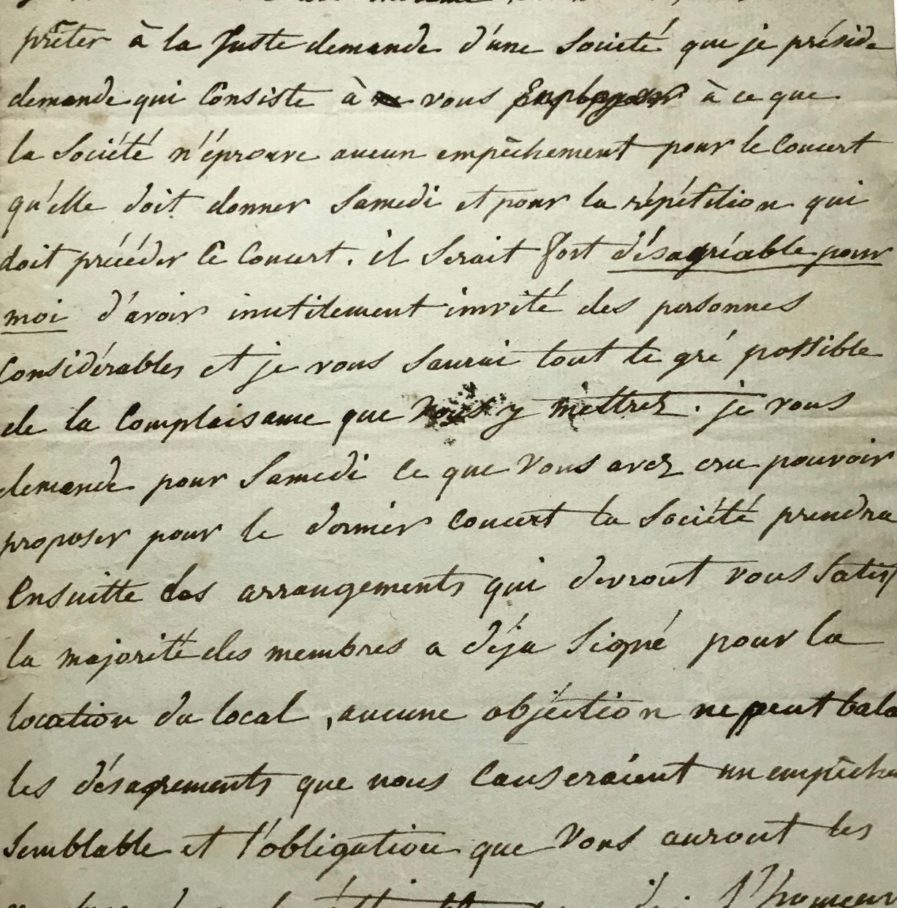 prêter à la Juste demande d'une Société que je préside
demande qui Consiste à vous Employer à ce que
la Société n'éprouve aucun empêchement pour le Concert
qu'elle doit donner Samedi et pour la répétition qui
doit précéder Ce Concert. il Serait fort désagréable pour
moi d'avoir inutilement invité des personnes
Considérables et je vous Saurai tout le gré possible
de la Complaisance que vous y mettrez. je vous
demande pour Samedi Ce que Vous avez cru pouvoir
proposer pour le dernier Concert la Société prendra
Ensuitte des arrangements qui devront vous Satisf
la majorité des membres a déja Signé pour la
location du local, aucune objection ne peut bala
les désagrements que nous Causeraient un empêche
Semblable et l'obligation que Vous auront les
l'honneur